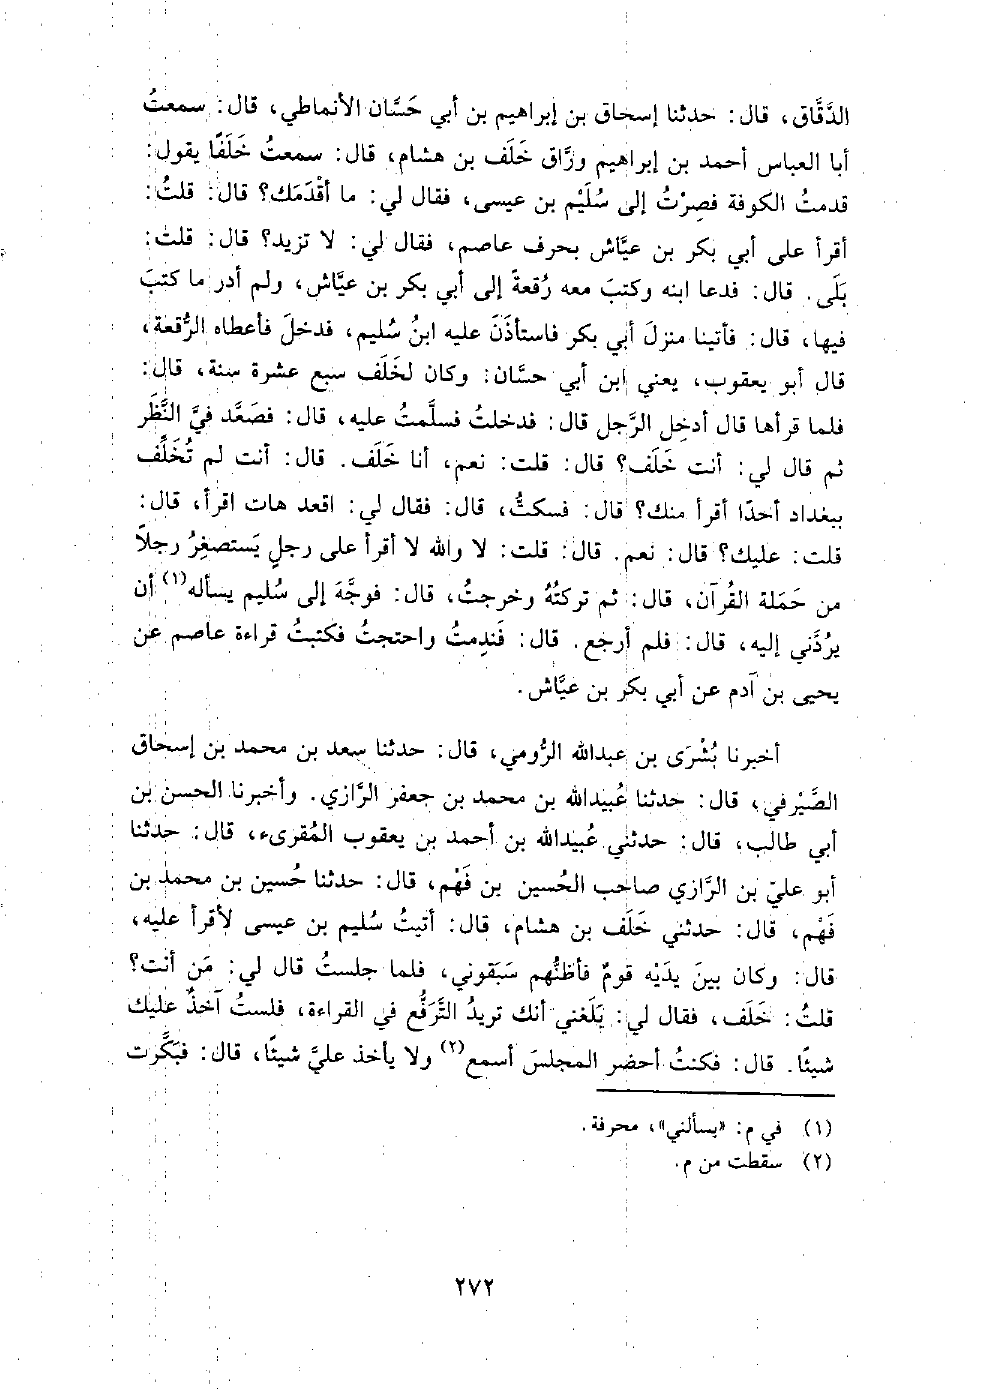 الدَّقَّاق، قال: حدثنا إسحاق بن إبراهيم بن أبي حَسَّان الأنماطي، قال: سمعتُ
أبا العباس أحمد بن إبراهيم ورَّاق خَلَف بن هشام، قال: سمعتُ خَلَفًا يقول:
قدمتُ الكوفة فصِرْتُ إلى سُلَيْم بن عيسى، فقال لي: ما أقْدَمَك؟ قال: قلتُ:
أقرأ على أبي بكر بن عيَّاش بحرف عاصم، فقال لي: لا تزيد؟ قال: قلت:
بَلَى. قال: فدعا ابنه وكتبَ معه رُقعةً إلى أبي بكر بن عيَّاش، ولم أدر ما كتبَ
فيها، قال: فأتينا منزلَ أبي بكر فاستأذَنَ عليه ابنُ سُليم، فدخلَ فأعطاه الرُّقعة،
قال أبو يعقوب، يعني ابن أبي حسَّان: وكان لخَلَف سبع عشرة سنة، قال:
فلما قرأها قال أدخِل الرَّجل قال: فدخلتُ فسلَّمتُ عليه، قال: فصَعَّد فيَّ النَّظَر
ثم قال لي: أنت خَلَف؟ قال: قلت: نعم، أنا خَلَف. قال: أنت لم تُخَلِّف
ببغداد أحدًا أقرأ منك؟ قال: فسكتُّ، قال: فقال لي: اقعد هات اقرأ، قال:
قلت: عليك؟ قال: نعم. قال: قلت: لا والله لا أقرأ على رجلٍ يَستصغِرُ رجلاً
من حَمَلة القُرآن، قال: ثم تركتُهُ وخرجتُ، قال: فوجَّهَ إلى سُليم يسأله(١) أن
يرُدَّني إليه، قال: فلم أرجع. قال: فَندِمتُ واحتجتُ فكتبتُ قراءة عاصم عن
يحيى بن آدم عن أبي بكر بن عيَّاش.
أخبرنا بُشْرَى بن عبدالله الرُّومي، قال: حدثنا سعد بن محمد بن إسحاق
الصَّيْرفي، قال: حدثنا عُبيدالله بن محمد بن جعفر الرَّازي. وأخبرنا الحسن بن
أبي طالب، قال: حدثني عُبيدالله بن أحمد بن يعقوب المُقرىء، قال: حدثنا
أبو عليّ بن الرَّازي صاحب الحُسين بن فَهْم، قال: حدثنا حُسين بن محمد بن
فَهْم، قال: حدثني خَلَف بن هشام، قال: أتيتُ سُليم بن عيسى لأقرأ عليه،
قال: وكان بينَ يدَيْه قومٌ فأظنُّهم سَبَقوني، فلما جلستُ قال لي: مَن أنت؟
قلتُ: خَلَف، فقال لي: بَلَغني أنك تريدُ التَّرَفُّع في القراءة، فلستُ آخذٌ عليك
شيئًا. قال: فكنتُ أحضر المجلسَ أسمع(٢) ولا يأخذ عليَّ شيئًا، قال: فبَكَّرت
(١) في م: «يسألني»، محرفة.
(٢) سقطت من م.
٢٧٢